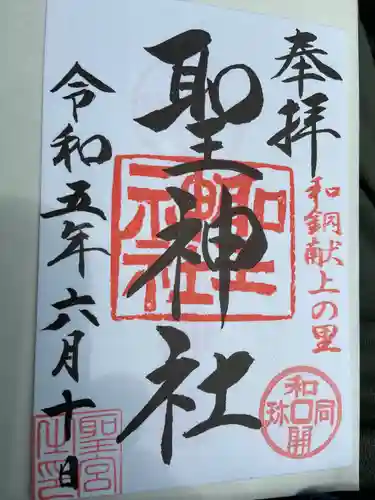 奉拝
和銅献上の里
聖神社
令和五年六月十日
聖神社
和同開珎
聖宮